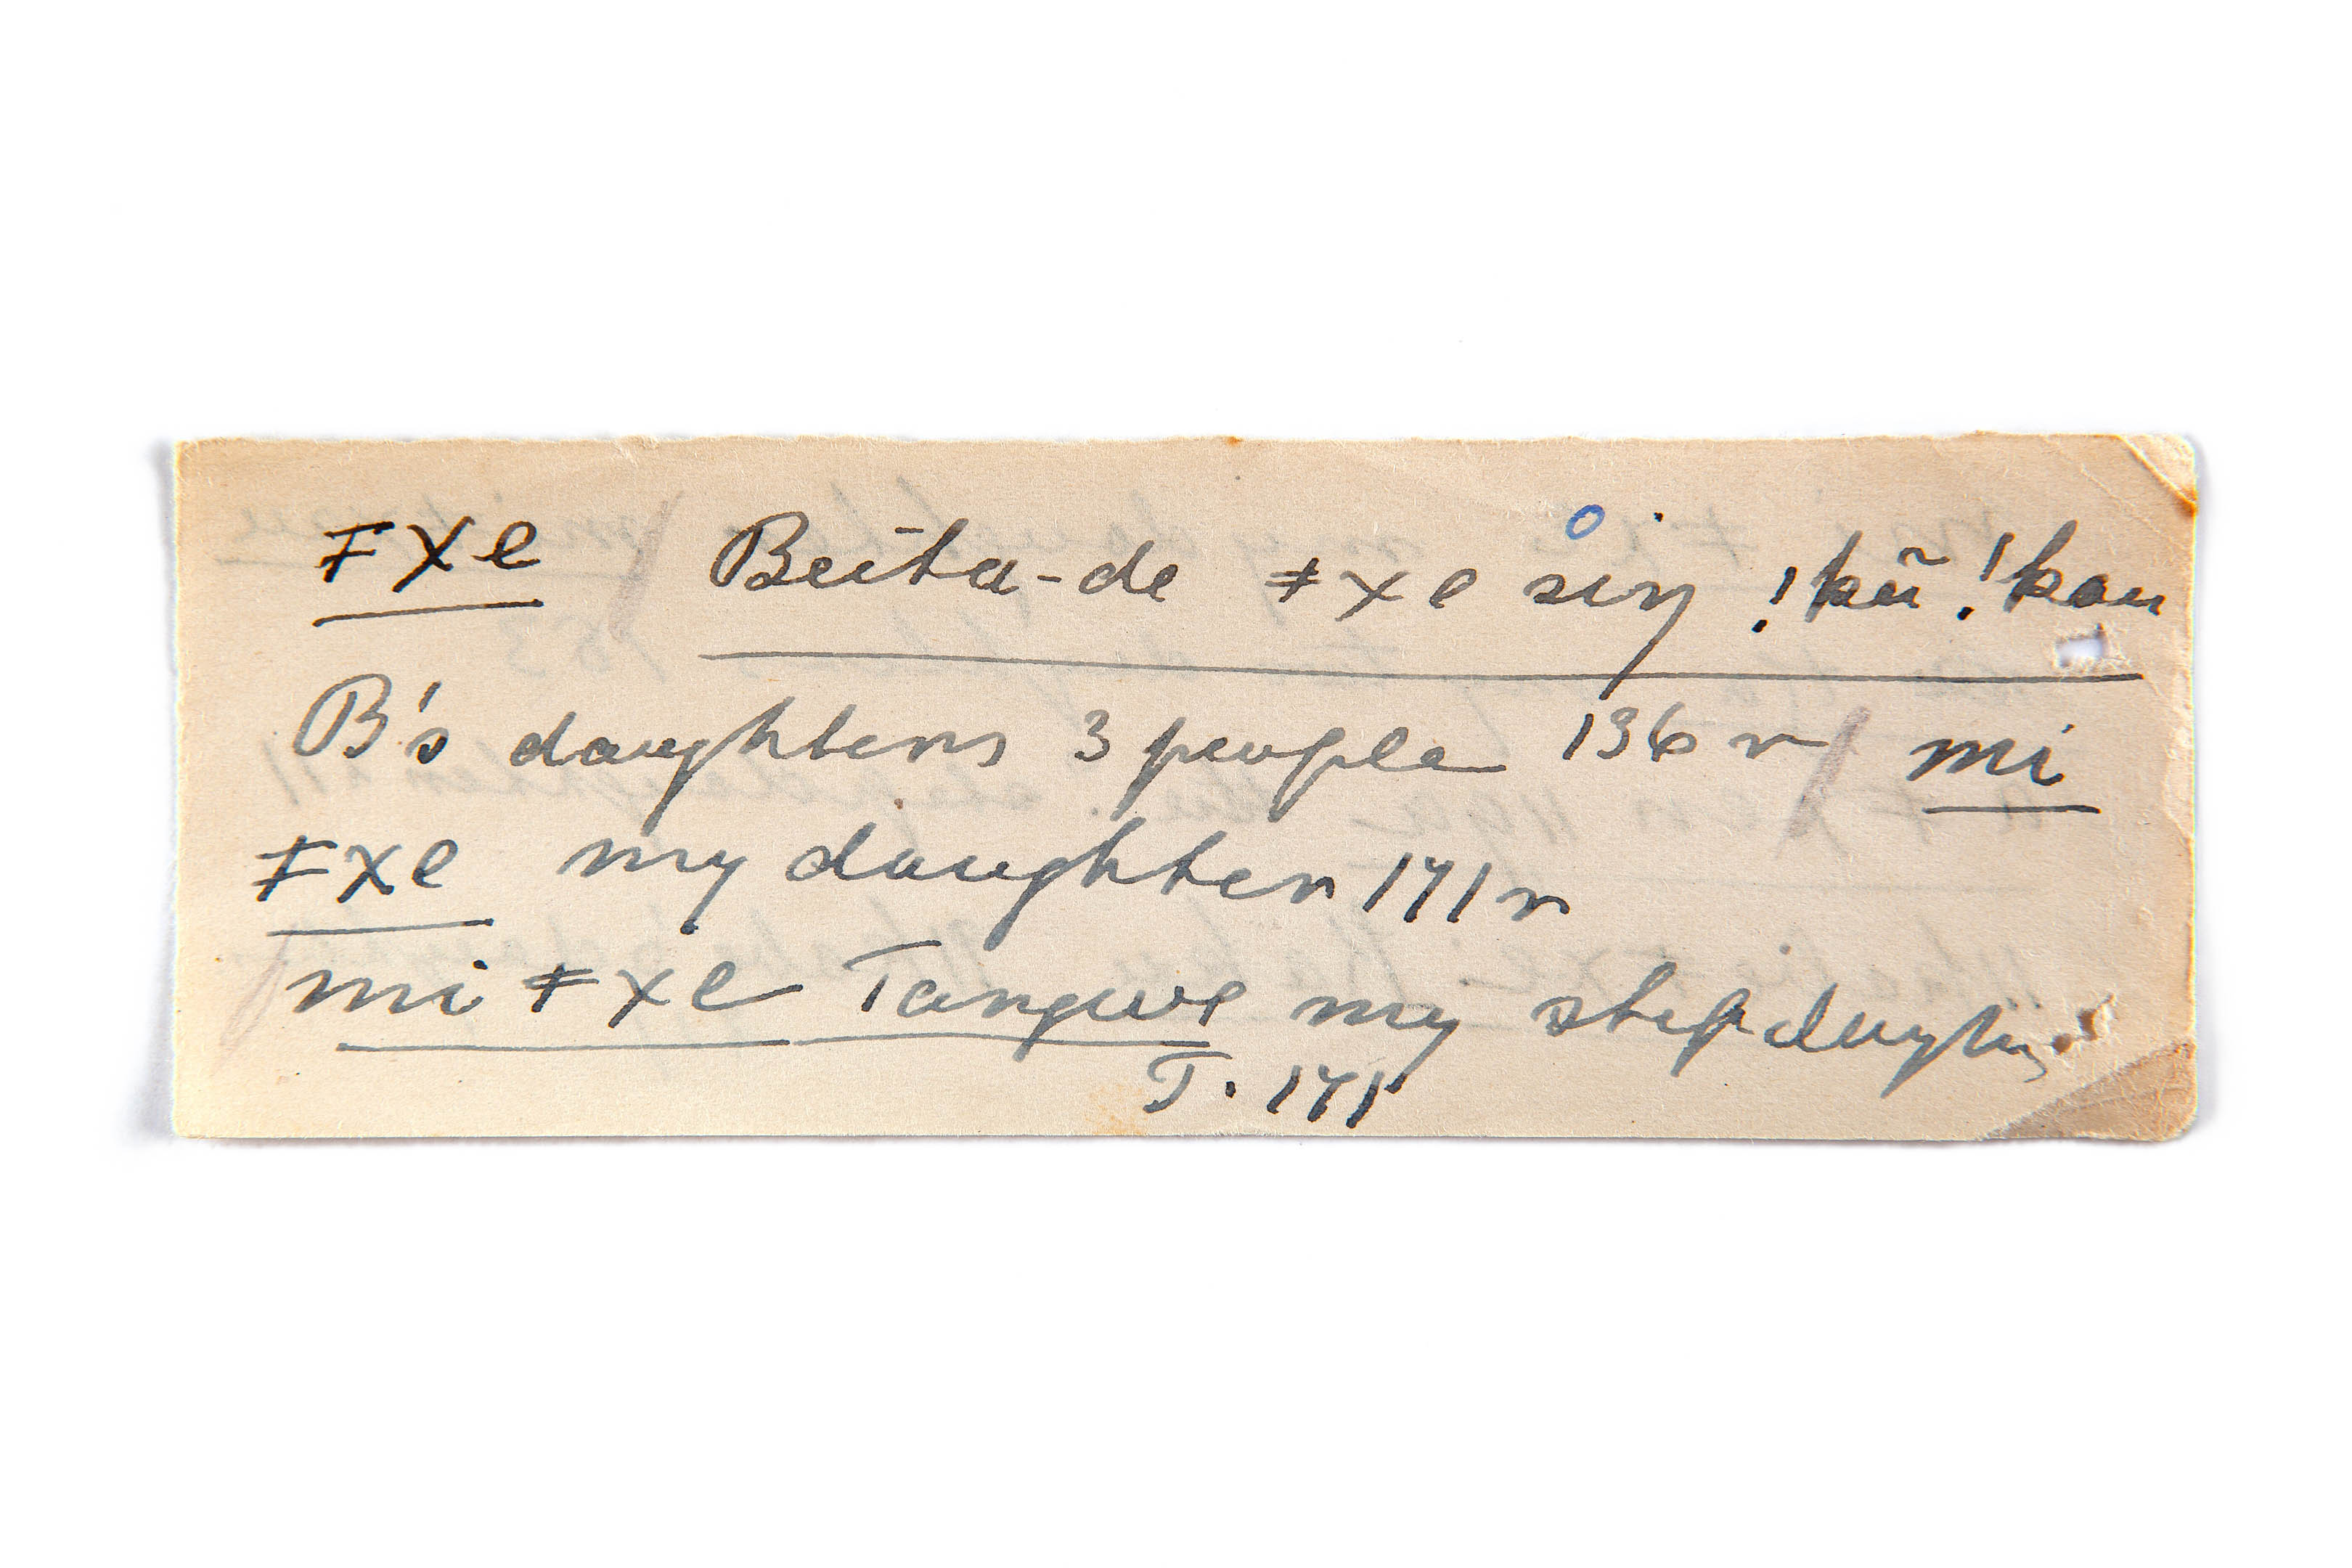 ǂxe Beita-de ǂxe siŋ !kũ !kau
B's daughters 3 people 136 r mi
ǂxe my daughter 171 r
mi ǂxe Tangwe my stepdaughter
T. 171